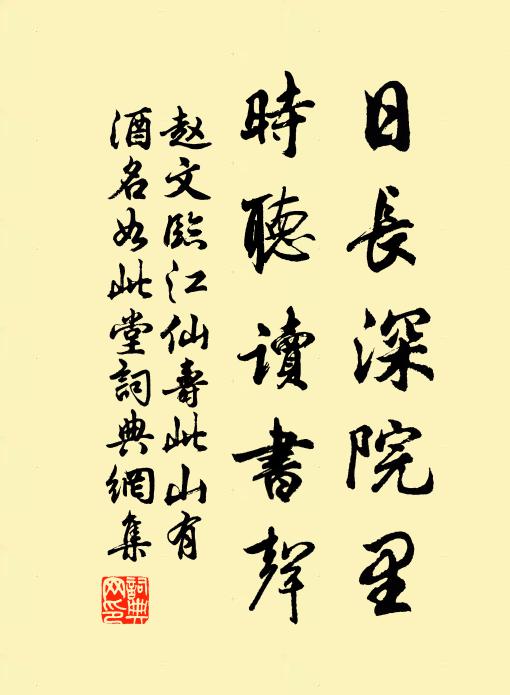 日長深院里
時聽讀書聲
赵文臨江仙壽此山有
酒名如此堂詞典網集
詞典网印